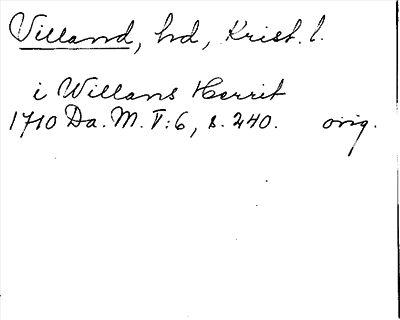 Villand, hd, Krist. l.
i Willans Herrit
1710 Da. M. V:6, s. 240. orig.